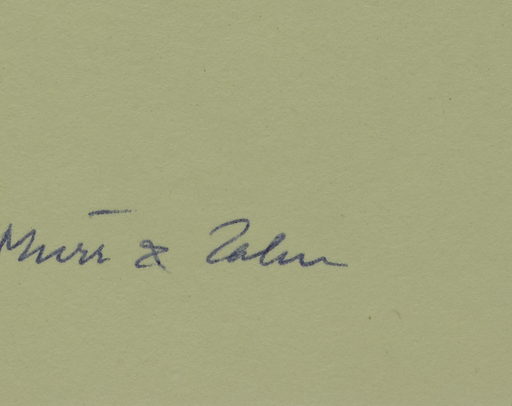 Murr & Zahn